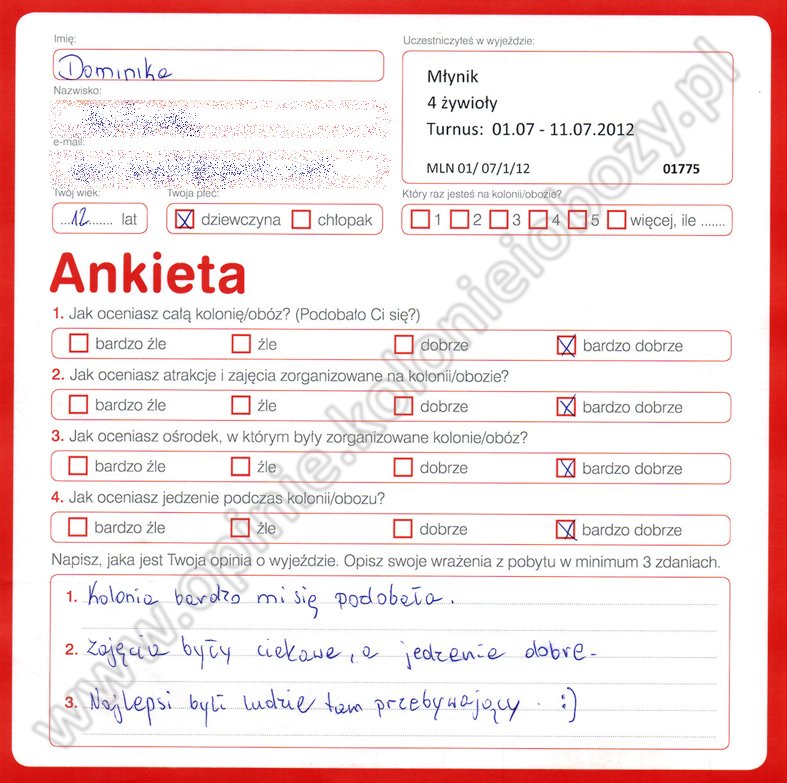 Imię:
Dominika
Nazwisko:
e-mail:
Twój wiek:
12 lat
Twoja płeć:
dziewczyna chłopak
Uczestniczyłeś w wyjeździe:
Młynik
4 żywioły
Turnus: 01.07 - 11.07.2012
MLN 01/ 07/1/12 01775
Który raz jesteś na kolonii/obozie?
1 2 3 4 5 więcej, ile .......
Ankieta
1. Jak oceniasz całą kolonię/obóz? (Podobało Ci się?)
bardzo źle źle dobrze bardzo dobrze
2. Jak oceniasz atrakcje i zajęcia zorganizowane na kolonii/obozie?
bardzo źle źle dobrze bardzo dobrze
3. Jak oceniasz ośrodek, w którym były zorganizowane kolonie/obóz?
bardzo źle źle dobrze bardzo dobrze
4. Jak oceniasz jedzenie podczas kolonii/obozu?
bardzo źle źle dobrze bardzo dobrze
Napisz, jaka jest Twoja opinia o wyjeździe. Opisz swoje wrażenia z pobytu w minimum 3 zdaniach.
1. Kolonia bardzo mi się podobała.
2. Zajęcia były ciekawe, a jedzenie dobre.
3. Najlepsi byli ludzie tam przebywający. :)
www.opinie.kolonieiobozy.pl